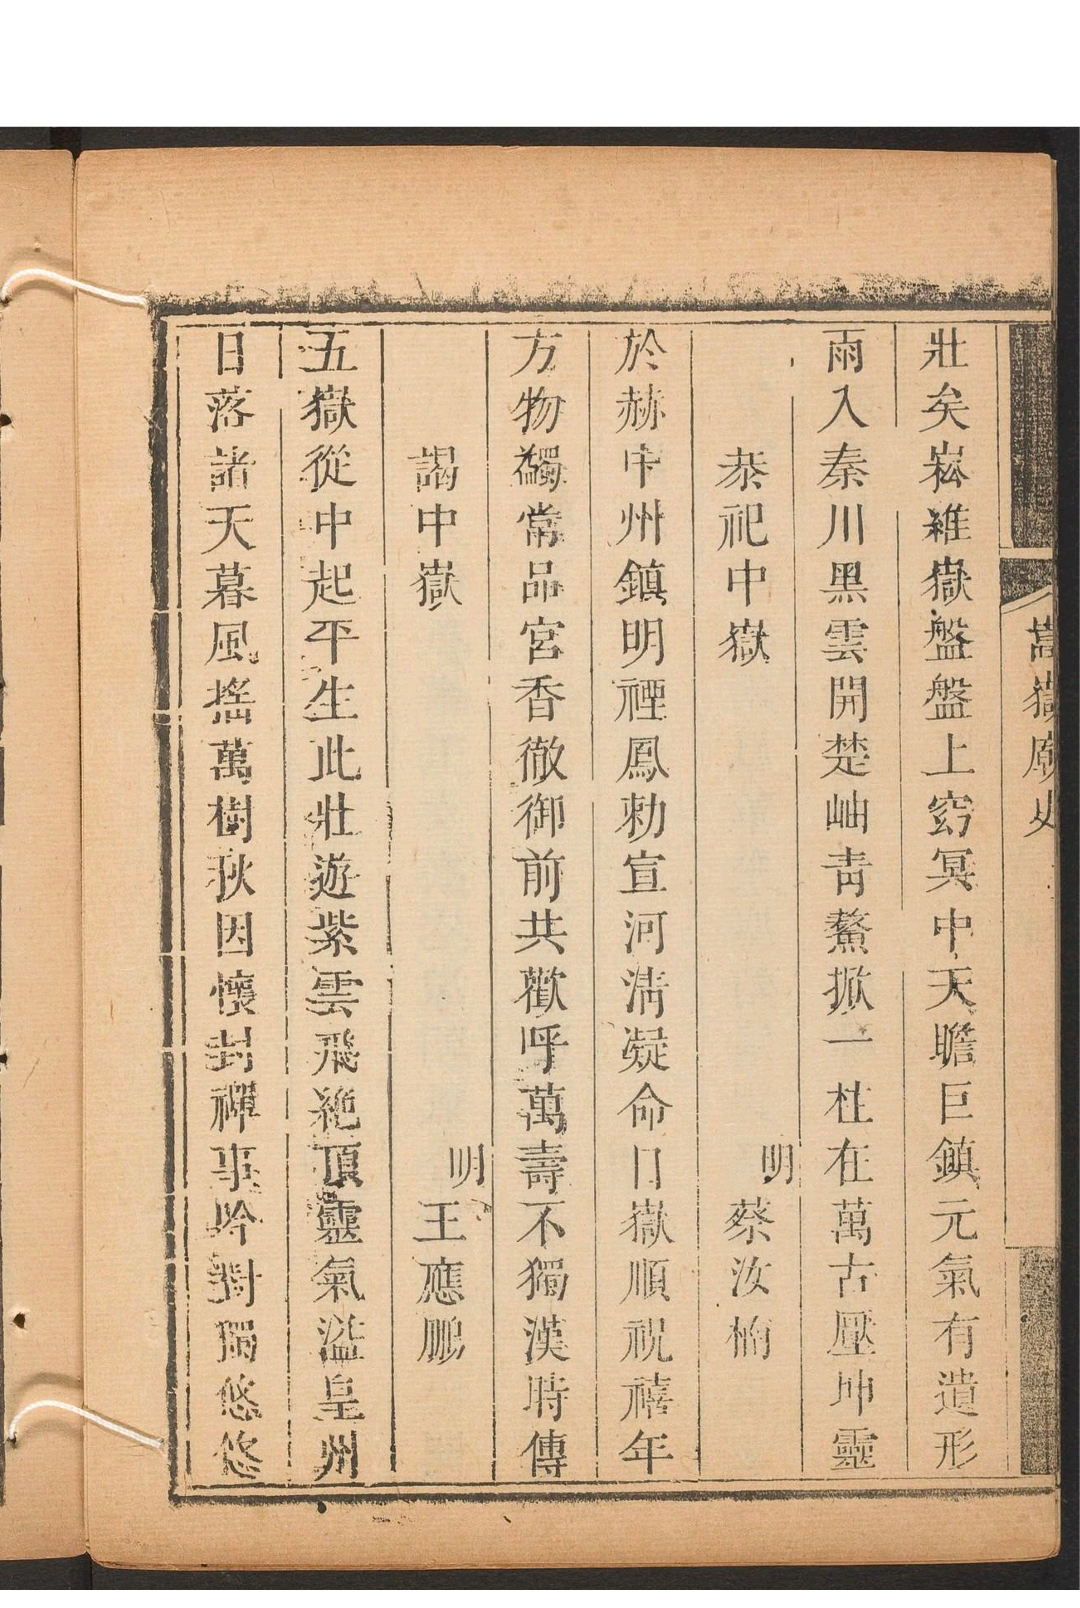 嵩嶽廟史
壯矣崧維嶽盤盤上窈冥中天瞻巨鎮元氣有遺形
雨入秦川黑雲開楚岫青鰲掀一柱在萬古壓坤靈
恭祀中嶽
明 蔡汝楠
於赫中州鎮明禋鳳勅宣河清凝命日嶽順祝禧年
方物蠲常品宮香徹御前共歡呼萬壽不獨漢時傳
謁中嶽
明 王應鵬
五嶽從中起平生此壯遊紫雲飛絶頂靈氣溢皇州
日落諸天暮風搖萬樹秋因懷封禪事吟對獨悠悠